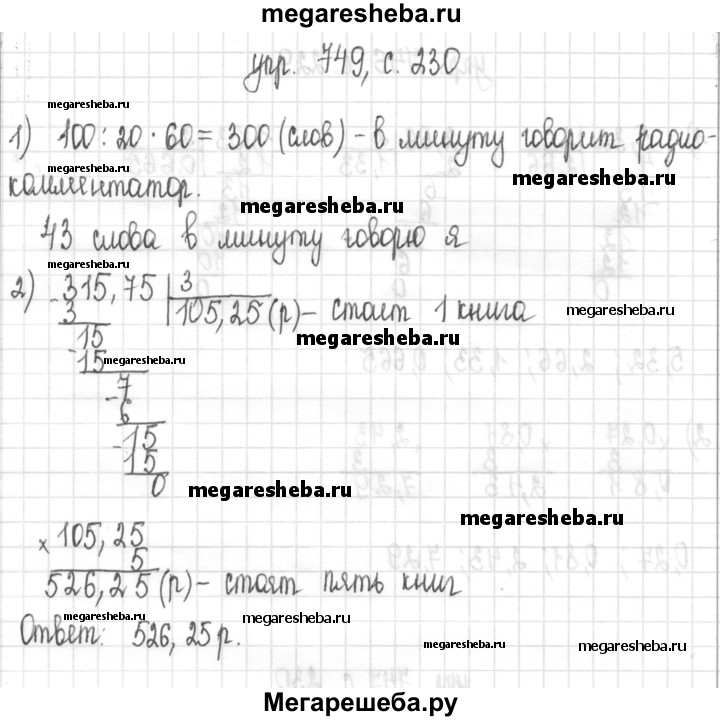 megaresheba.ru
упр. 749, с. 230
megaresheba.ru
1) 100 : 20 · 60 = 300 (слов) – в минуту говорит радио-
megaresheba.ru
комментатор.
megaresheba.ru
megaresheba.ru
43 слова в минуту говорю я
megaresheba.ru
2) 315,75 | 3
- 3 105,25 (р) – стоит 1 книга
megaresheba.ru
15
megaresheba.ru
- 15
megaresheba.ru
7
- 6
15
- 15
0
megaresheba.ru
megaresheba.ru
× 105,25
5
526,25 (р) – стоят пять книг
megaresheba.ru
megaresheba.ru
Ответ: 526,25 р.
megaresheba.ru
megaresheba.ru
Мегарешеба.ру